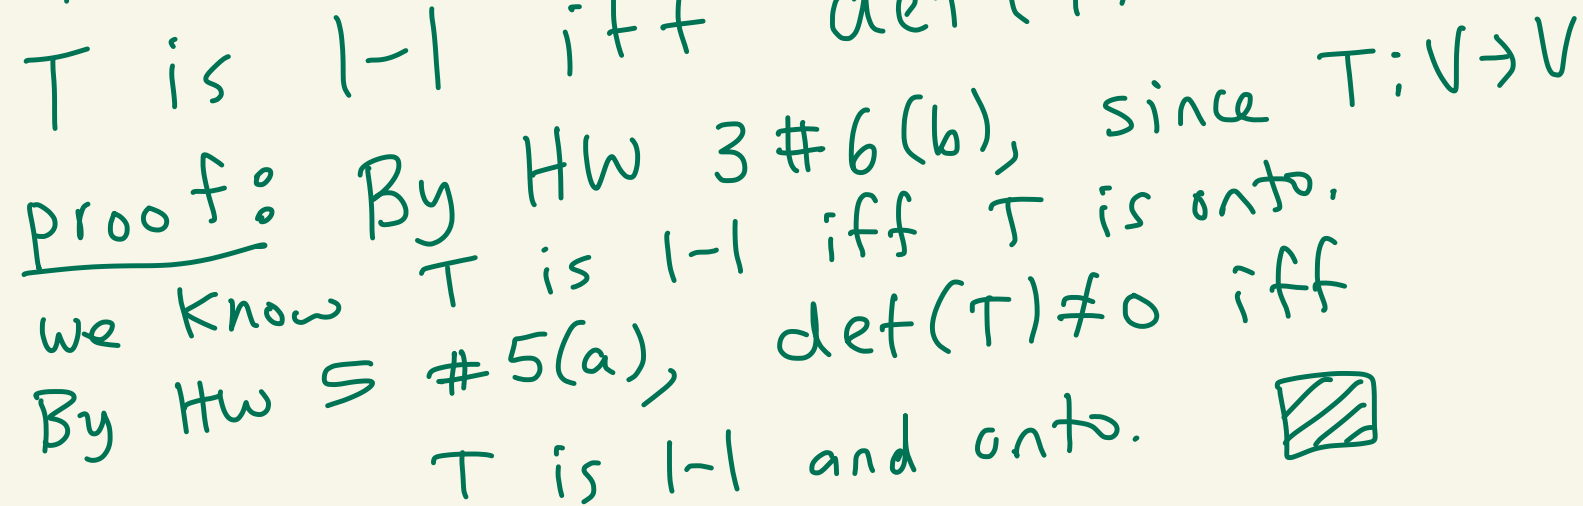 T is 1-1 iff det(T)
proof: By HW 3 #6(b), since T: V→V
we know T is 1-1 iff T is onto.
By HW 5 #5(a), det(T)≠0 iff
T is 1-1 and onto.